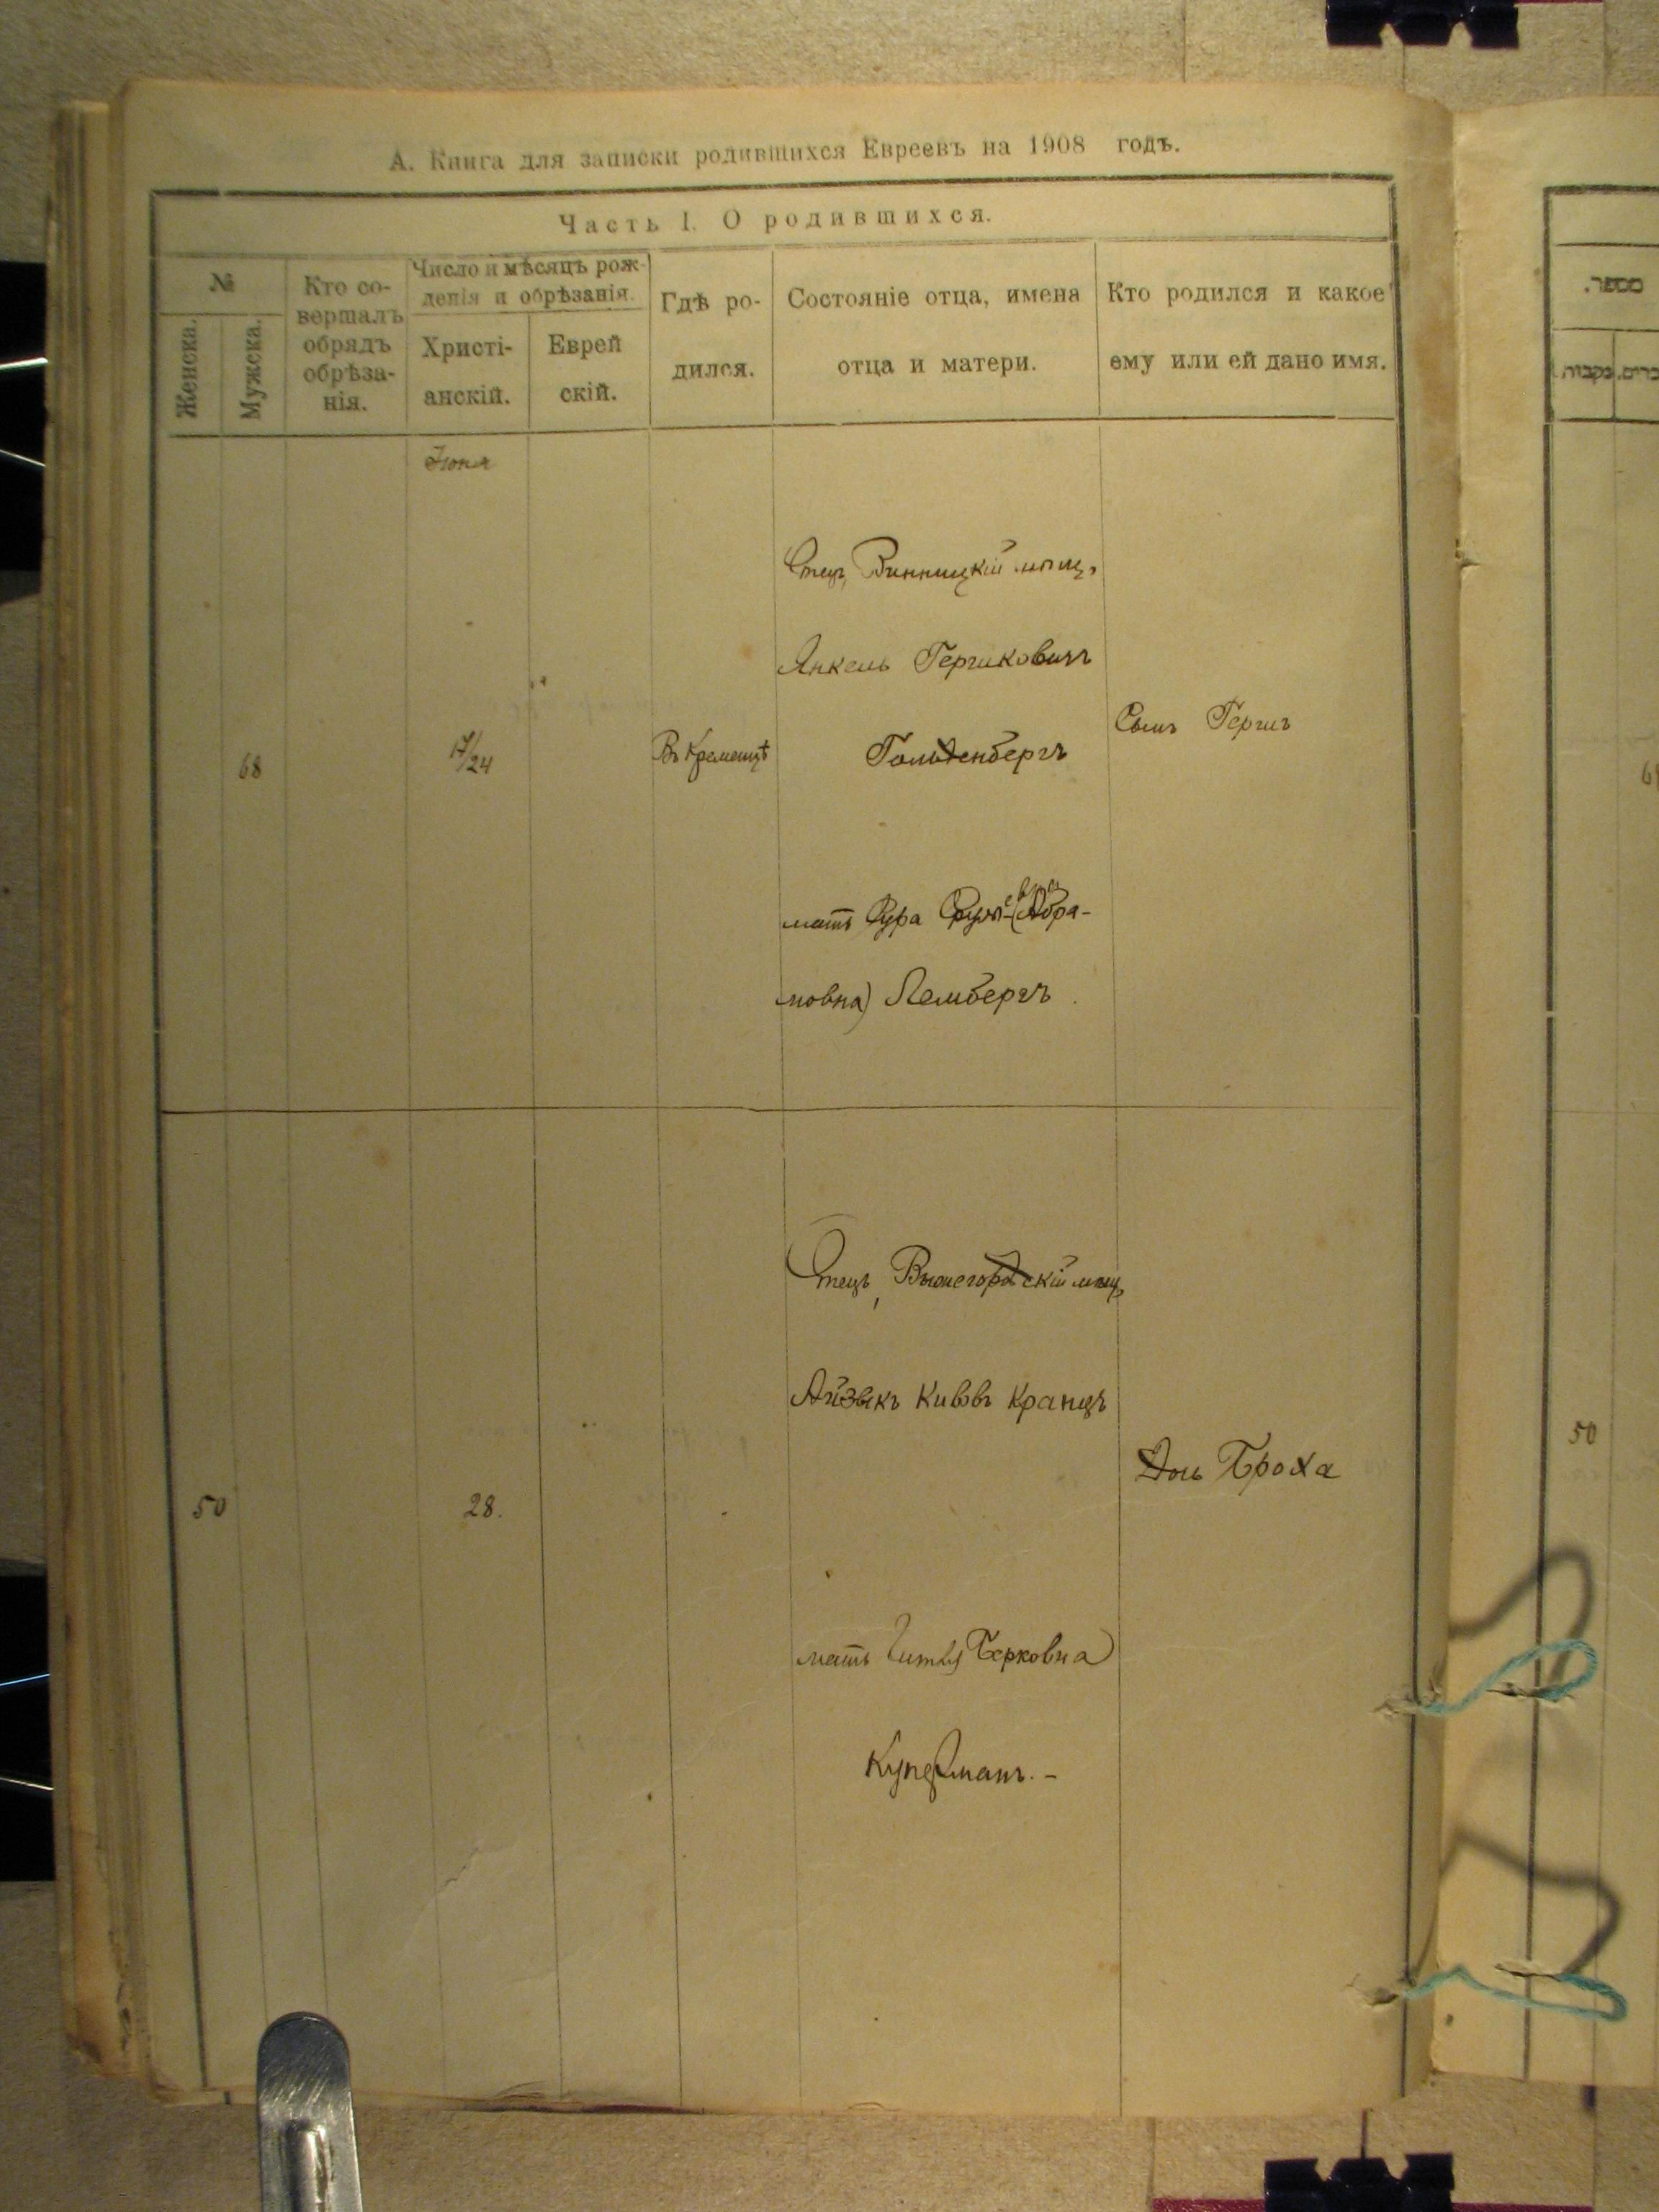 А. Книга для записки родившихся Евреевъ на 1908 годъ.
Часть I. О родившихся.
№
Женска.
Мужска.
Кто со-
вершалъ
обрядъ
обрѣза-
нія.
Число и мѣсяцъ рож-
денія и обрѣзанія.
Христі-
анскій.
Еврей
скій.
Гдѣ ро-
дился.
Состояніе отца, имена
отца и матери.
Кто родился и какое
ему или ей дано имя.
Іюня
68
17/24
Въ Кременцѣ
Отецъ, Винницкій мѣщ.
Янкель Гершковичъ
Гольденбергъ
мать Сура (Абра-
мовна) Лембергъ
Сынъ Гершъ
50
28.
Отецъ, Вышегородскій мѣщ.
Айзыкъ Кивовъ Кранцъ
мать Берковна
Куперманъ. -
Дочь Броха
מספר.
נקבות.
50